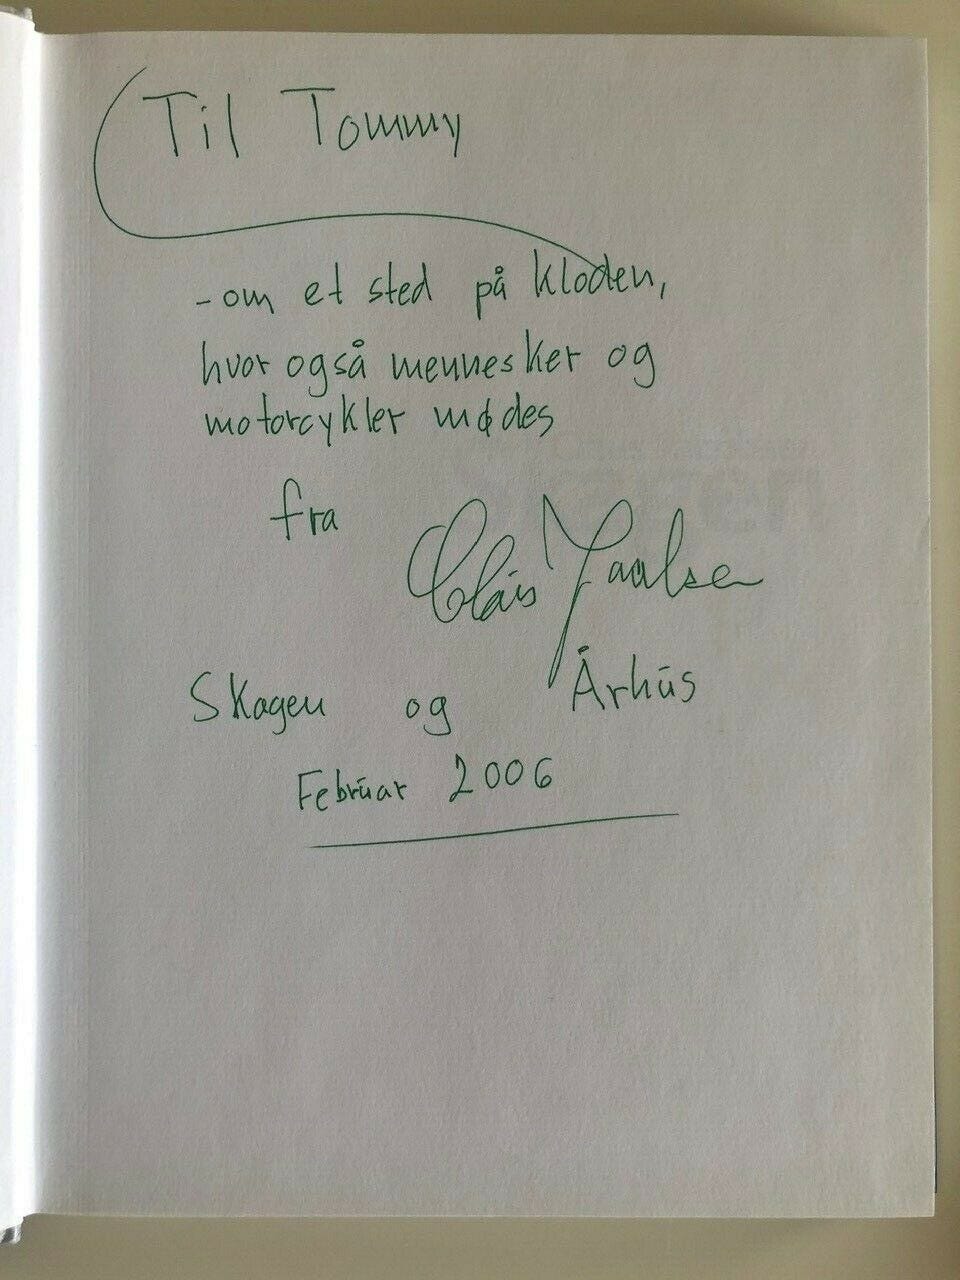 Til Tommy
- om et sted på kloden,
hvor også mennesker og
motorcykler mødes
fra
Skagen og Århus
Februar 2006